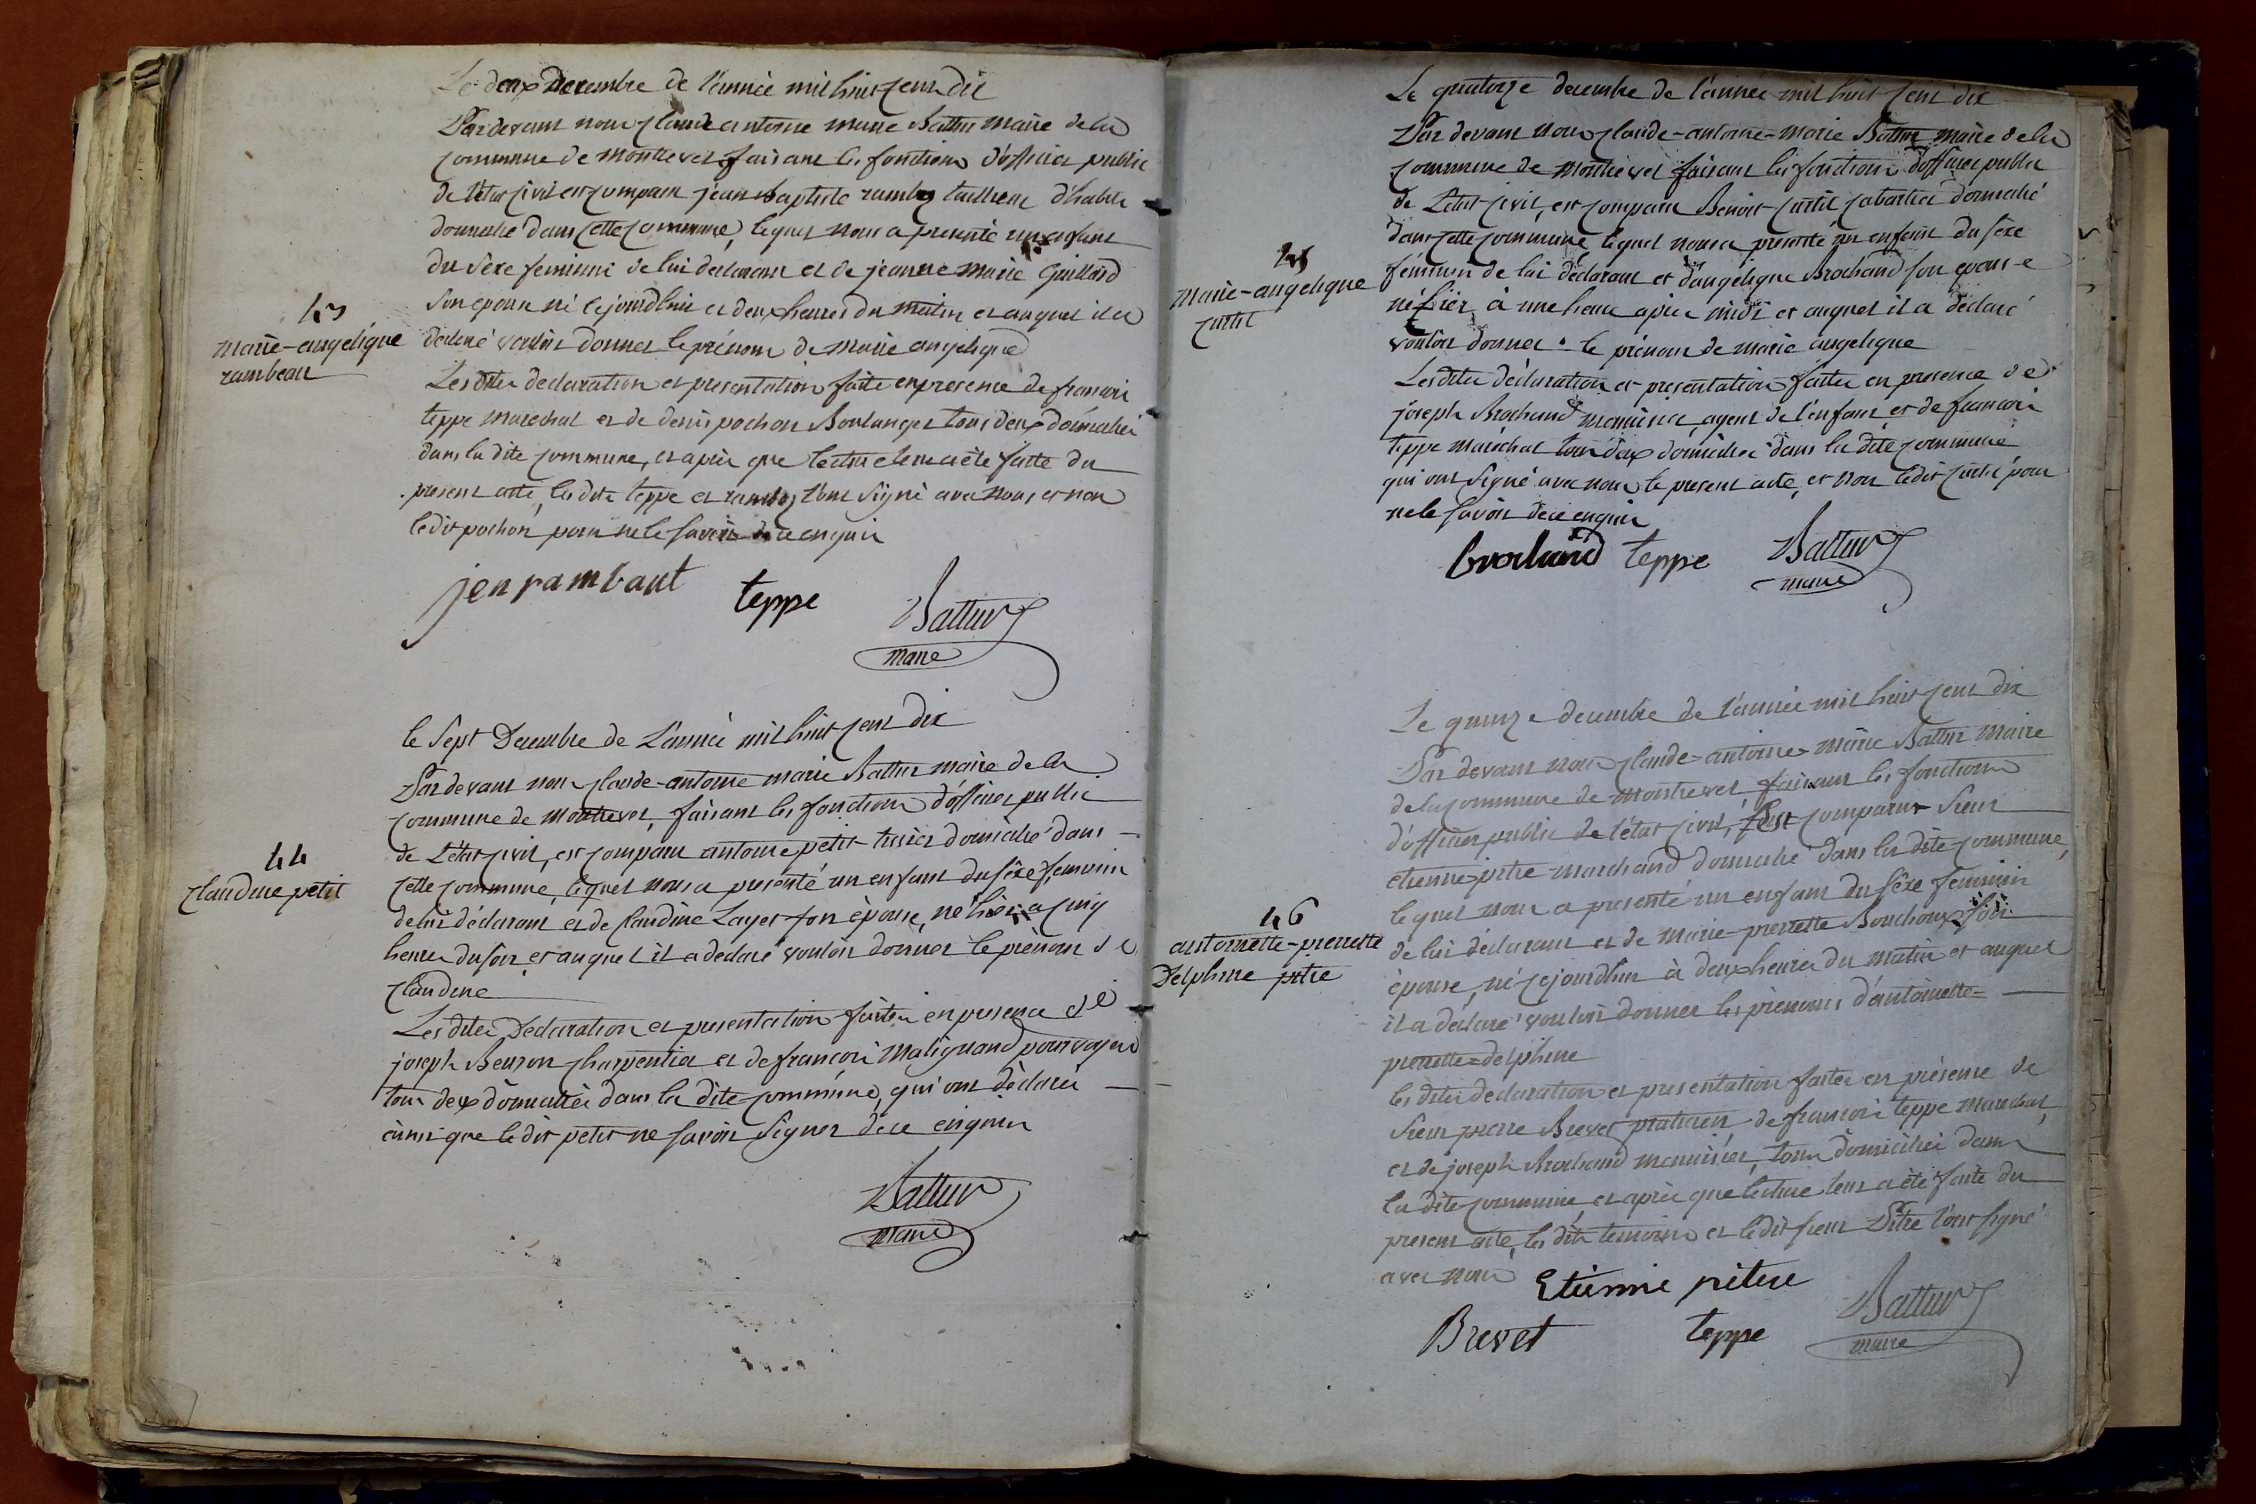 Le deux decembre de l'année mil huit cent dix
Par devant nous claude antoine marie Battur maire de la
commune de montrevel faisant les fonctions d'officier public
de l'état civil est comparu jean Baptiste tailleur d'habits
domicilié dans cette commune, lequel nous a presenté un enfant
du sexe feminin de lui declarant et de jeanne marie Guillard
son epouse né cejourdhui et deux heures du matin et auquel il a
declaré vouloir donner le prénom de marie angelique
43
marie-angelique
rambeau
Les dites declaration et presentation faite en presence de francois
teppe marechal et de denis pochon Boulanger tous deux domiciliés
dans la dite commune, et après que lecture leur a été faite du
present acte, les dits teppe et l'ont signé avec nous et non
ledit pochon pour ne le savoir de ce enquis
jen rambaut teppe Battur
maire
le Sept Decembre de L'année mil huit cent dix
Par devant nous claude-antoine marie Battur maire de la
commune de montrevel, faisant les fonctions d'officier public
de L'état civil, est comparu antoine petit tissier domicilié dans
cette commune, lequel nous a presenté un enfant du sexe feminin
de lui déclarant et de claudine Layer son épouse, né hier a cinq
heures du soir, et auquel il a declaré vouloir donner le prénom de
claudine
44
claudine petit
Les dites Declaration et presentation faites en presence de
joseph Beuron charpentier et de francois Malignand pourvoyeur
tous deux domiciliés dans la dite commune, qui ont déclaré
ainsi que ledit petit ne savoir signer de ce enquis
Battur
maire
Le quatorze decembre de l'année mil huit cent dix
Par devant nous claude-antoine-marie Battur maire de la
commune de montrevel faisant les fonctions d'officier public
de L'état civil, est comparu Benoit curtil cabartier domicilié
dans cette commune, lequel nous a presenté un enfant du sexe
féminin de lui déclarant et d'angélique Brochand son epouse
né hier à une heure après midi et auquel il a déclaré
vouloir donner le prénom de marie angelique
45
marie-angelique
curtil
Les dites déclaration et presentation faites en presence de
joseph Brochand menuisier, agent de l'enfant et de francois
teppe maréchal tous deux domiciliés dans la dite commune
qui ont signé avec nous le present acte, et non ledit curtil pour
ne le savoir de ce enquis
brochand teppe Battur
maire
Le quinze decembre de l'année mil huit cent dix
Par devant nous claude-antoine-marie Battur maire
de la commune de montrevel faisant les fonctions
d'officier public de l'état civil, est comparu Sieur
etienne pitre marchand domicilié dans la dite commune,
lequel nous a presenté un enfant du sexe feminin
de lui déclarant et de marie-pierrette Bouchoux son
épouse, né cejourdhui à deux heures du matin et auquel
il a déclaré vouloir donner les prénoms d'antoinette-
pierrette-delphine
46
antoinette-pierrette
Delphine pitre
les dites declaration et presentation faites en présence de
Sieur pierre Brevet praticien de francois teppe marechal,
et de joseph Brochand menuisier, tous domiciliés dans
la dite commune, et après que lecture leur a été faite du
present acte, les dits temoins et ledit sieur Pitre l'ont signé
avec nous
Etienne pitre
Brevet teppe Battur
maire